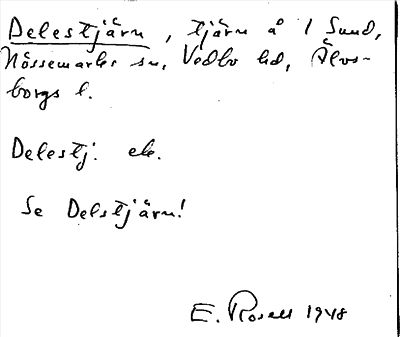 Delestjärn, tjärn å 1 Sund,
Nössemarks sn, Vedbo hd, Älvs-
borgs l.
Delestj. ek.
Se Delstjärn!
E. Rosell 1948